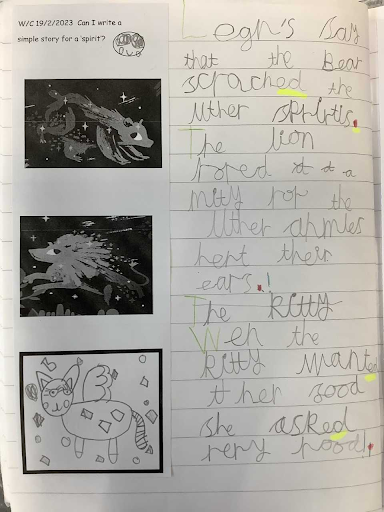 W/C 19/2/2023 Can I write a
simple story for a 'spirit'?
Legn's Say
that the Bear
scrached the
Uther
The lion
rored a
mity ror the
Uther
hert their
ears.!
The kitty
Wen the
kitty wanted
ther food
she asked
very